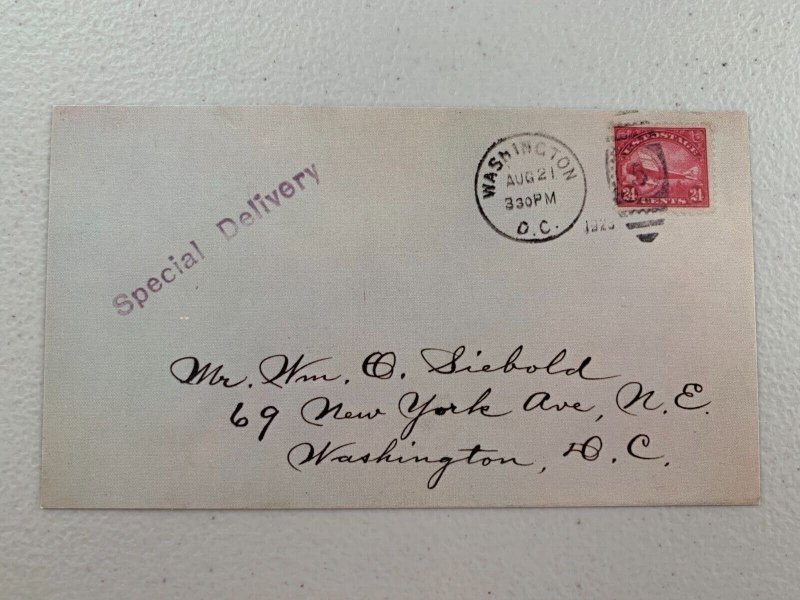 WASHINGTON
AUG 21
330PM
D.C.
U.S. POSTAGE
24 24
CENTS
Special Delivery
Mr. Wm. O. Siebold
69 New York Ave, N.E.
Washington, D.C.